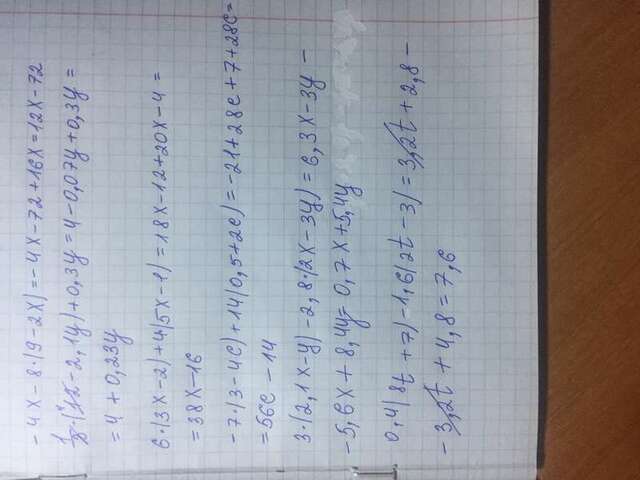 - 4x - 8·(9 - 2x) = - 4x - 72 + 16x = 12x - 72
1/3·(12 - 2,1y) + 0,3y = 4 - 0,07y + 0,3y =
= 4 + 0,23y
6·(3x - 2) + 4(5x - 1) = 18x - 12 + 20x - 4 =
= 38x - 16
- 7·(3 - 4c) + 14(0,5 + 2c) = - 21 + 28c + 7 + 28c =
= 56c - 14
3·(2,1x - y) - 2,8·(2x - 3y) = 6,3x - 3y -
- 5,6x + 8,4y = 0,7x + 5,4y
0,4(8t + 7) - 1,6(2t - 3) = 3,2t + 2,8 -
- 3,2t + 4,8 = 7,6